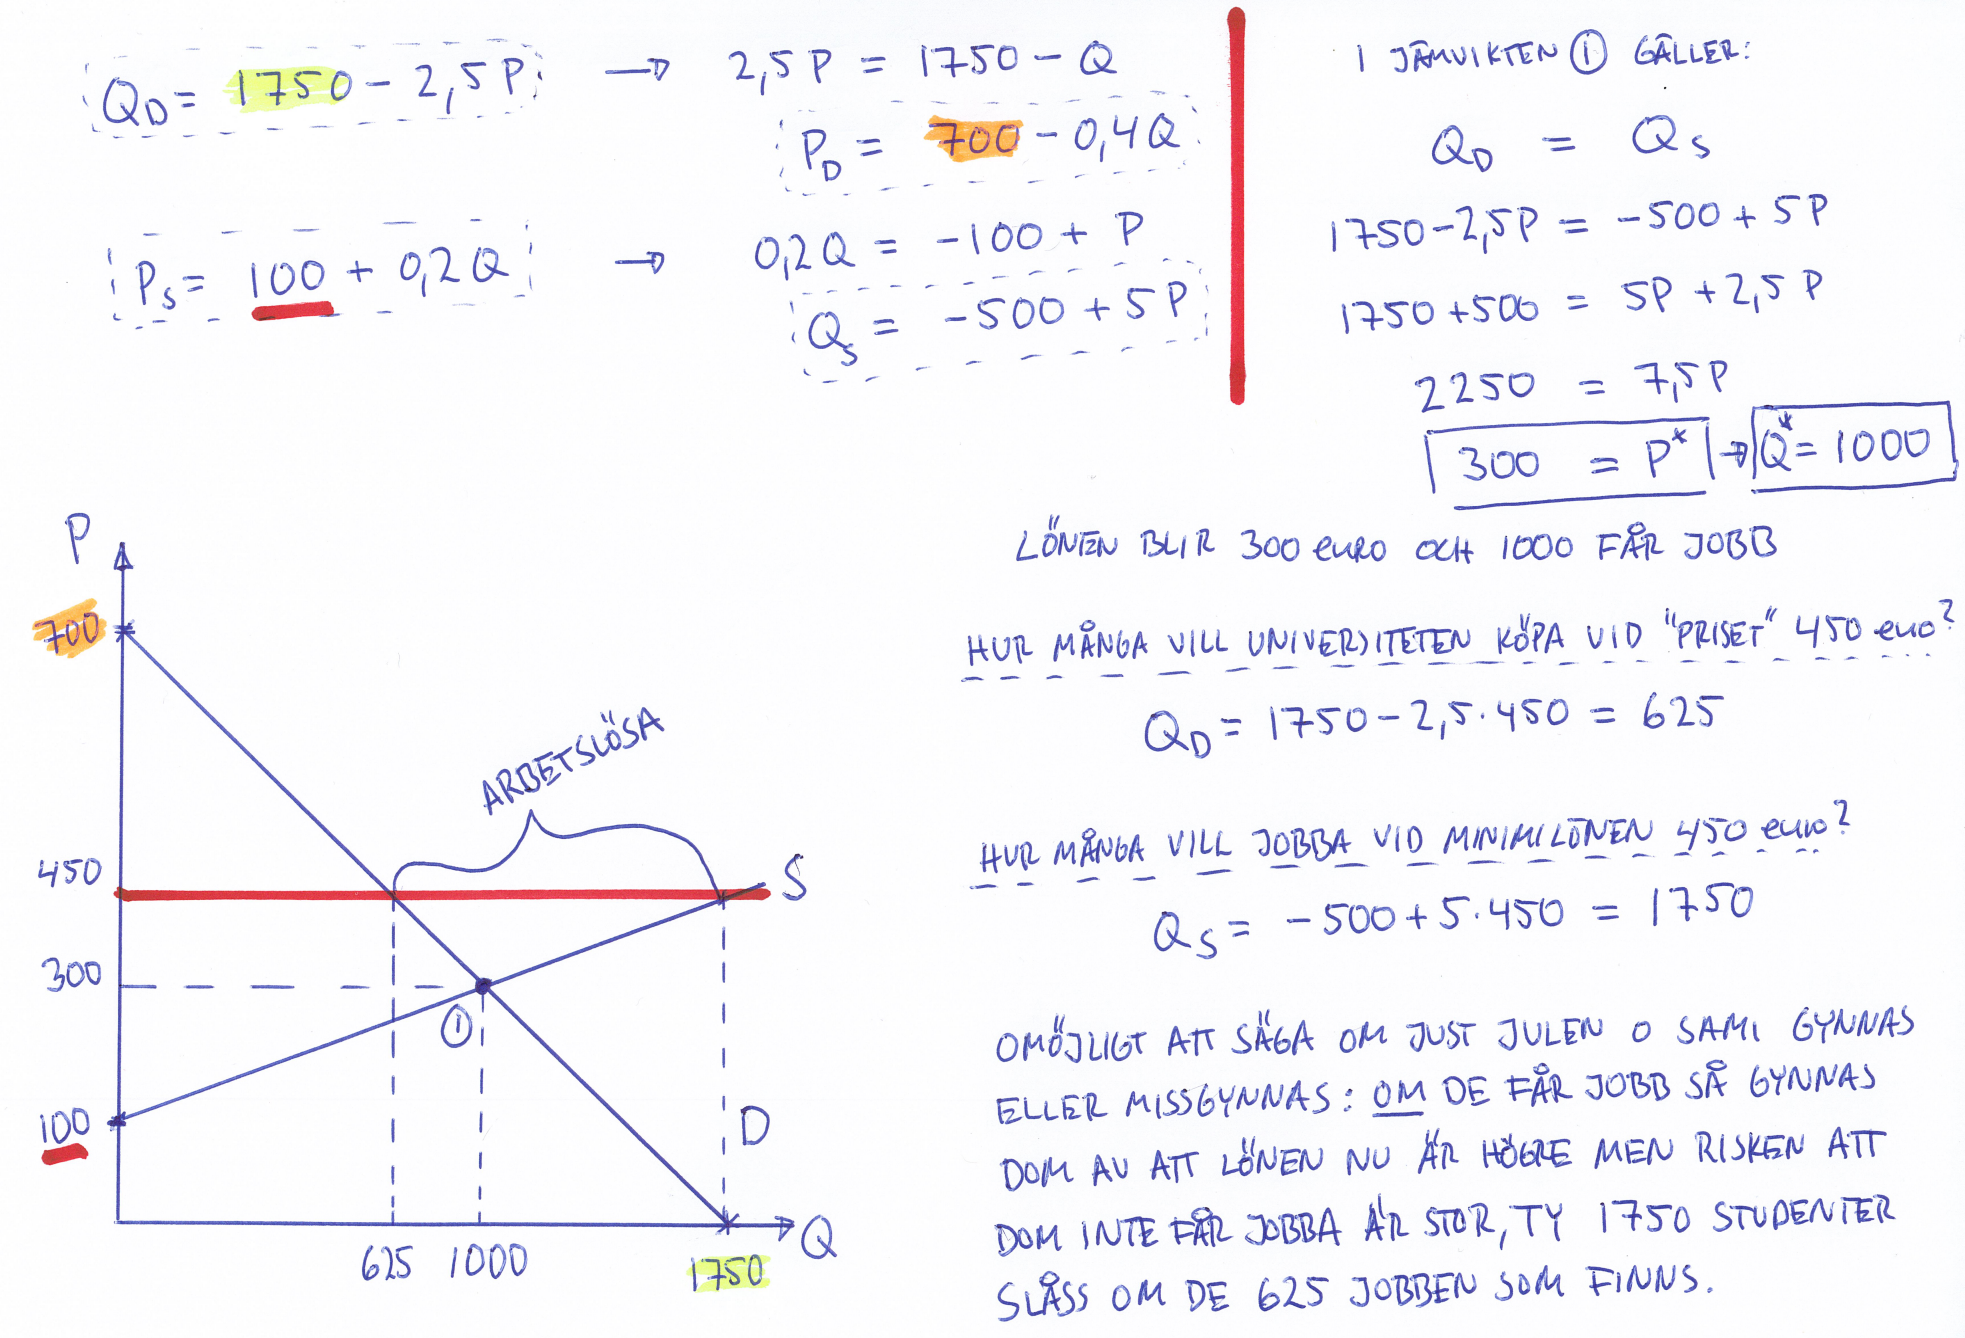 Q_D = 1750 - 2,5 P → 2,5 P = 1750 - Q
P_D = 700 - 0,4 Q
P_S = 100 + 0,2 Q → 0,2 Q = -100 + P
Q_S = -500 + 5 P
I JÄMVIKTEN ① GÄLLER:
Q_D = Q_S
1750 - 2,5P = -500 + 5P
1750 + 500 = 5P + 2,5 P
2250 = 7,5P
300 = P* → Q* = 1000
LÖNEN BLIR 300 euro OCH 1000 FÅR JOBB
HUR MÅNGA VILL UNIVERSITETEN KÖPA VID "PRISET" 450 euro?
Q_D = 1750 - 2,5·450 = 625
HUR MÅNGA VILL JOBBA VID MINIMILÖNEN 450 euro?
Q_S = -500 + 5·450 = 1750
OMÖJLIGT ATT SÄGA OM JUST JULEN O SAMI GYNNAS
ELLER MISSGYNNAS: OM DE FÅR JOBB SÅ GYNNAS
DOM AV ATT LÖNEN NU ÄR HÖGRE MEN RISKEN ATT
DOM INTE FÅR JOBBA ÄR STOR, TY 1750 STUDENTER
SLÅSS OM DE 625 JOBBEN SOM FINNS.
P
700
ARBETSLÖSA
450
S
300
①
100
D
625 1000 1750 Q